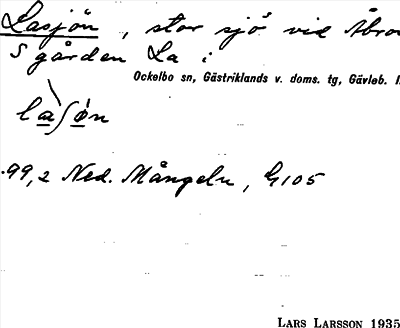 Lasjön, stor sjö vid Åbro
S gården La i
Ockelbo sn, Gästriklands v. doms. tg, Gävleb. l.
la̲ʃø̲n
.99,2 Ned. Mångeln, G105
LARS LARSSON 1935